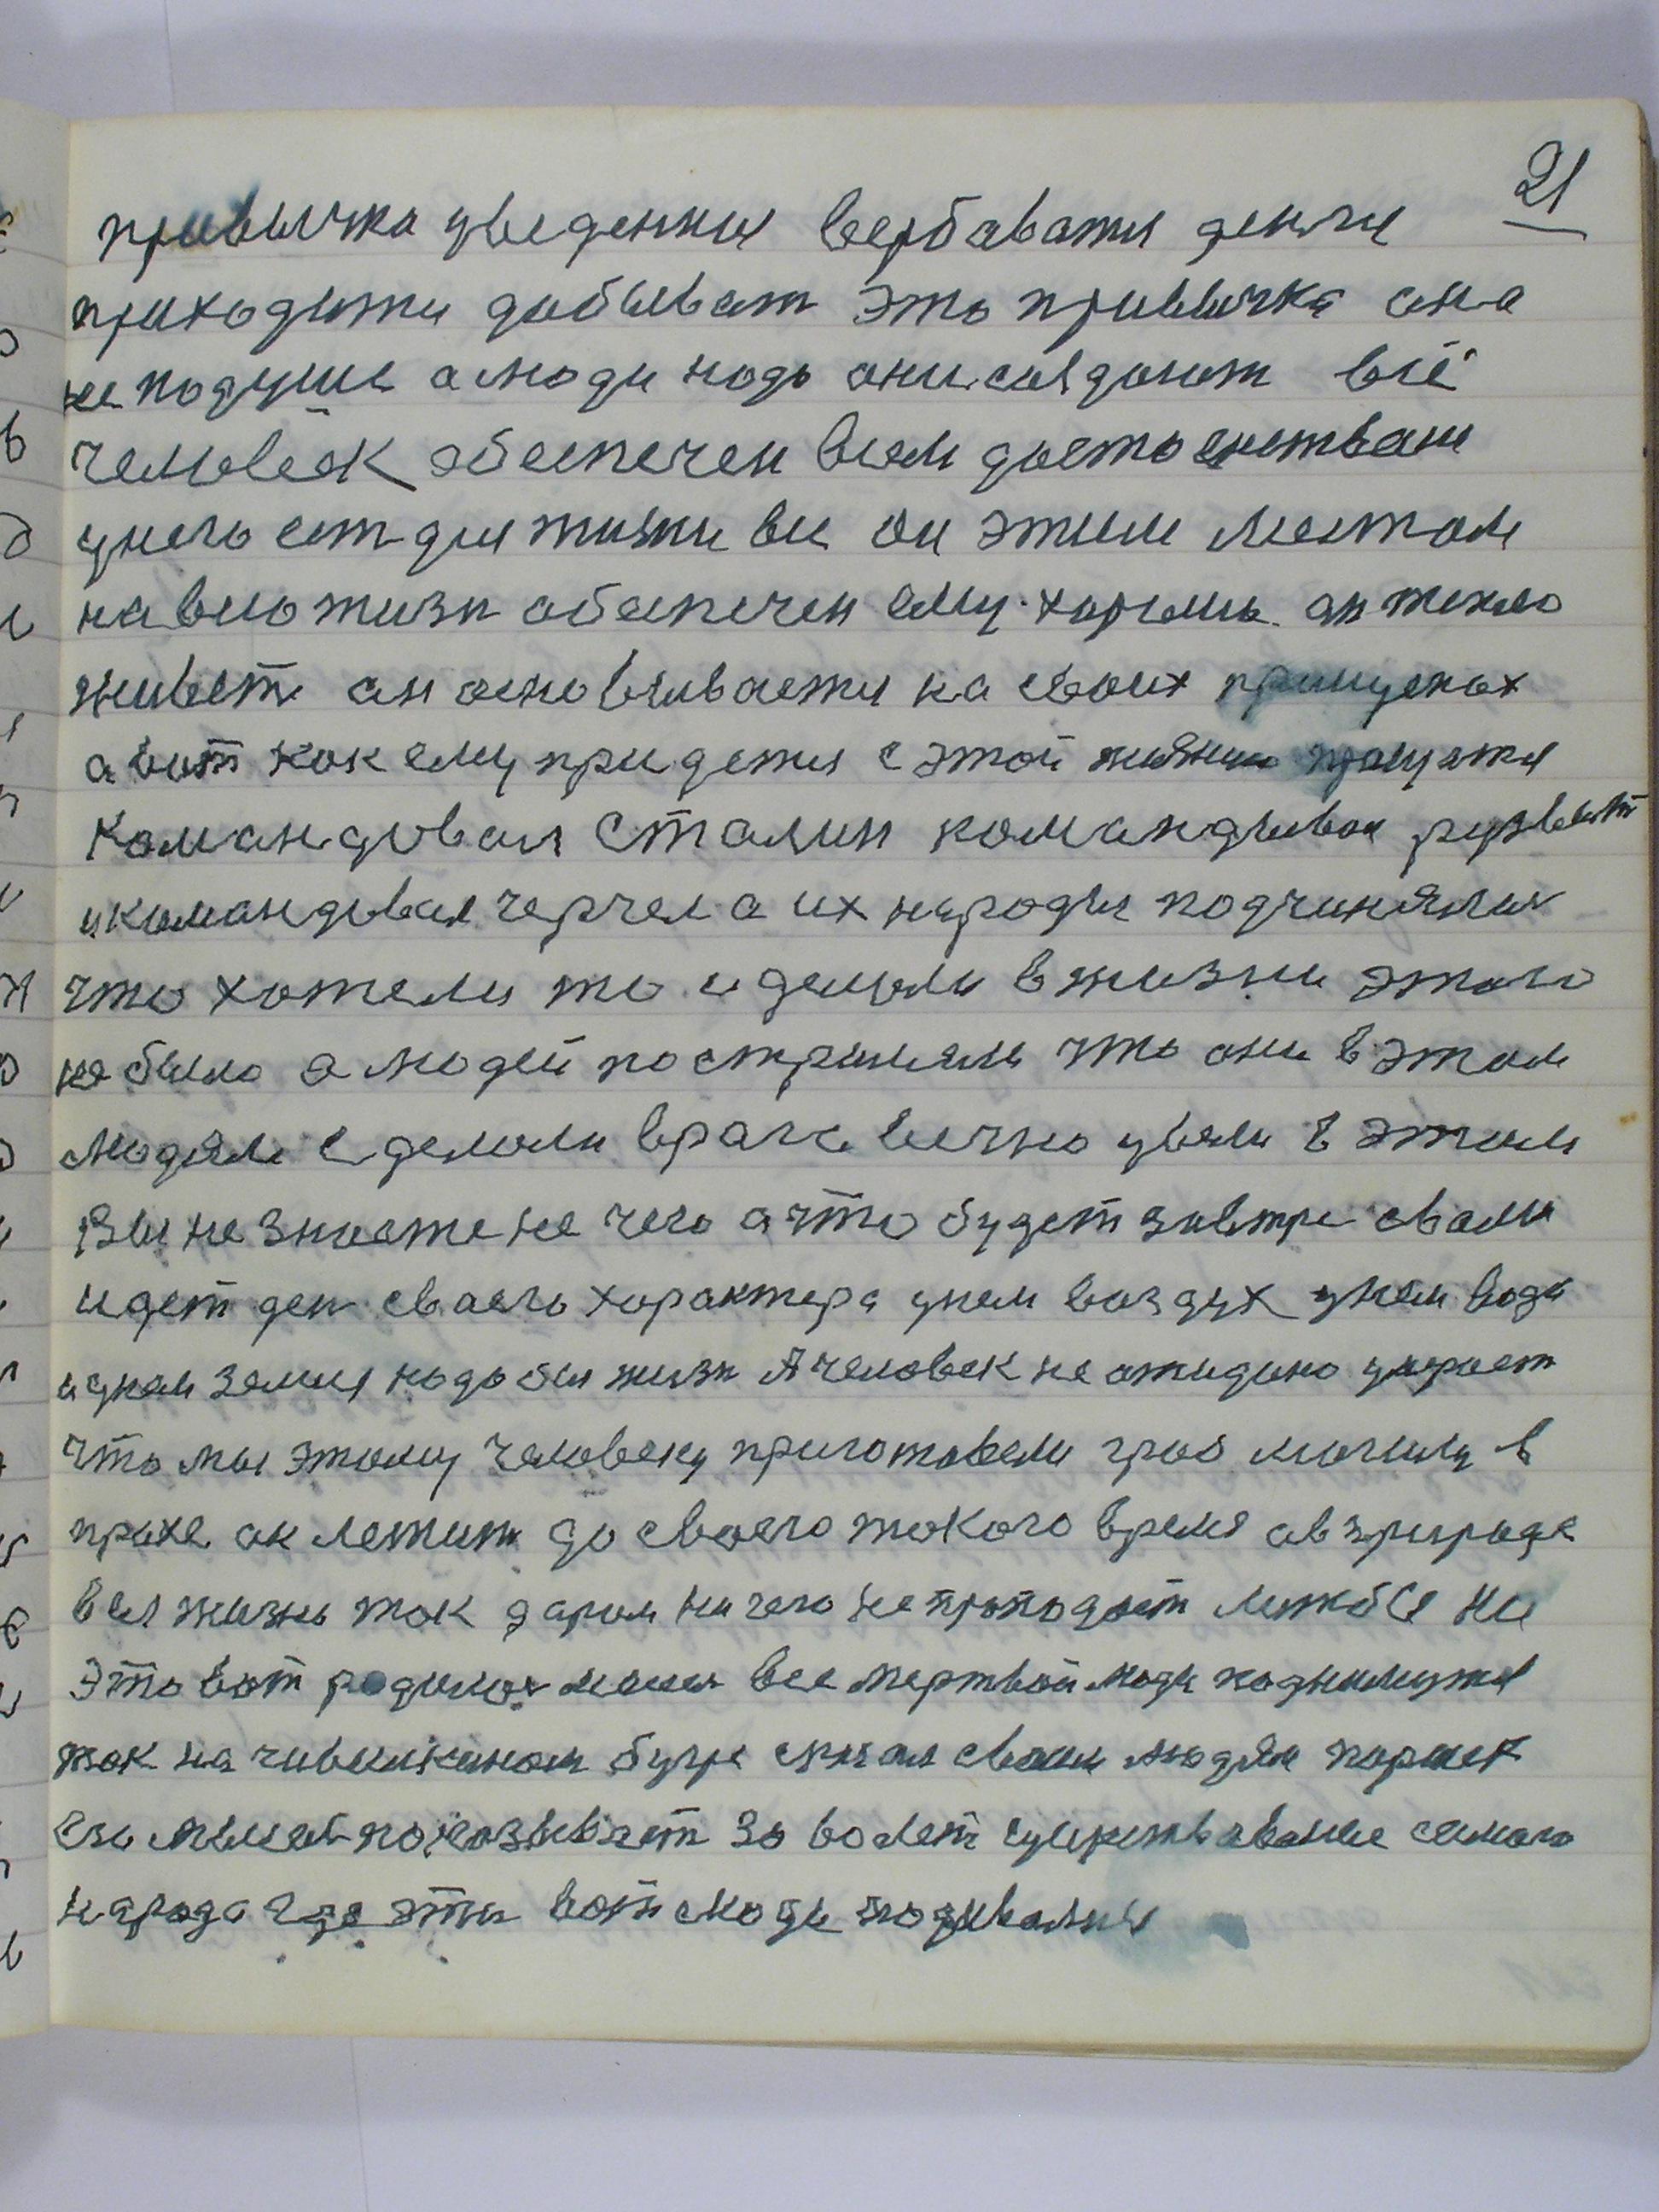 21
привычка уведения вербаватся денги
приходится добыват это привычка она
не подуше а люди надо они создают всё
человек обеспечен всем достоинствам
унего ест для жизни все он этим местом
на всю жизн обеспечен ему хорошо он тепло
живет он основывается на своих
а вот как ему придется с этой жизнию
командовал Сталин командывал рузвелт
икомандовал черчел а их народы подчинялис
что хотели то и делали в жизни этого
не было а людей постриляли что они в этом
людям сделали врага вечно увели в этом
Вы не знаете не чего а что будет завтре
идет ден сваего характера унем воздух унем вода
иунем земля надо бы жизн А человек не ожидано умрает
что мы этому человеку приготовели гроб могилу в
прахе он лежит до своего такого время а в природе
вся жизнь так даром ничего не пропадает лижбы на
это вот родилося все мертвои люди поднимутся
так на чивилкином бугре своим людям
показывает за волет самого
народа где эти вот люди